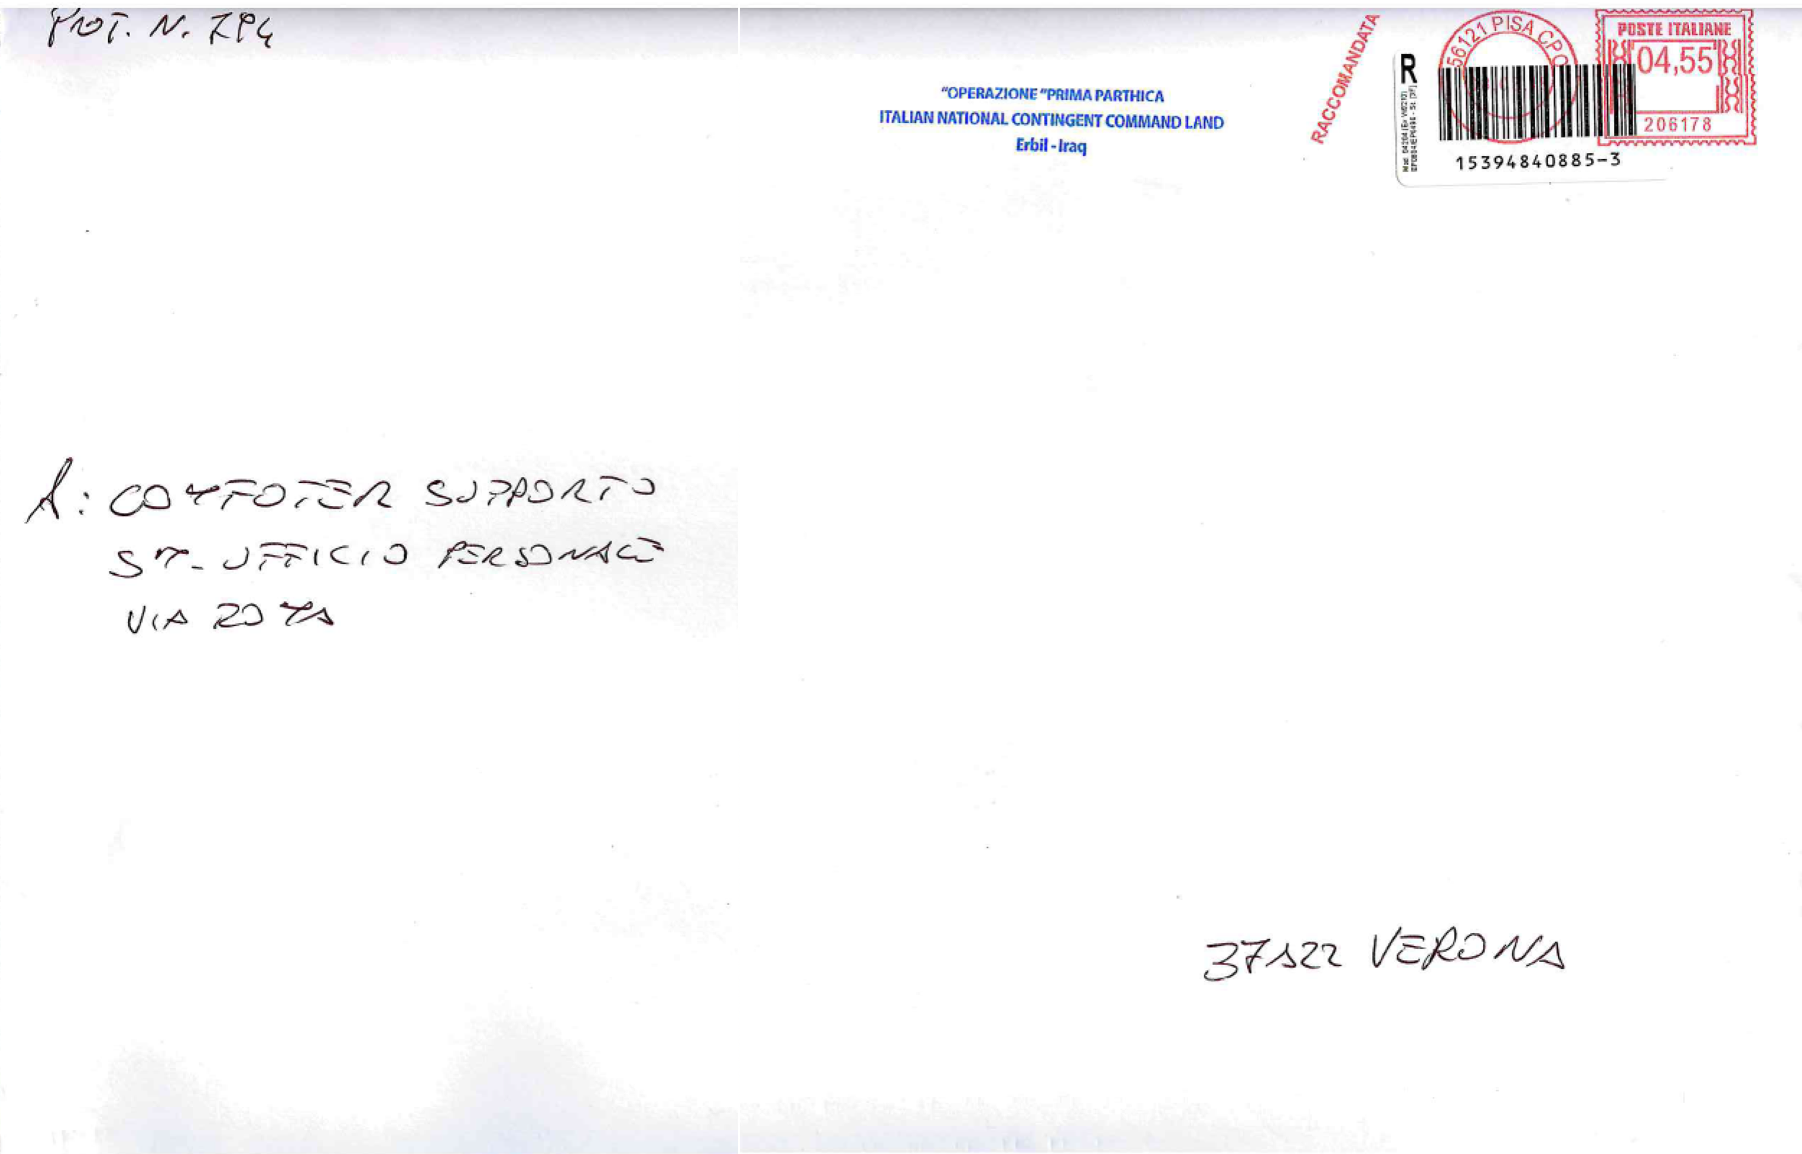 PROT. N. 784
"OPERAZIONE "PRIMA PARTHICA
ITALIAN NATIONAL CONTINGENT COMMAND LAND
Erbil - Iraq
RACCOMANDATA
R
56121 PISA CPO
POSTE ITALIANE
04,55
206178
15394840885-3
A: COMFOTER SUPPORTO
SM - UFFICIO PERSONALE
VIA ROMA
37122 VERONA